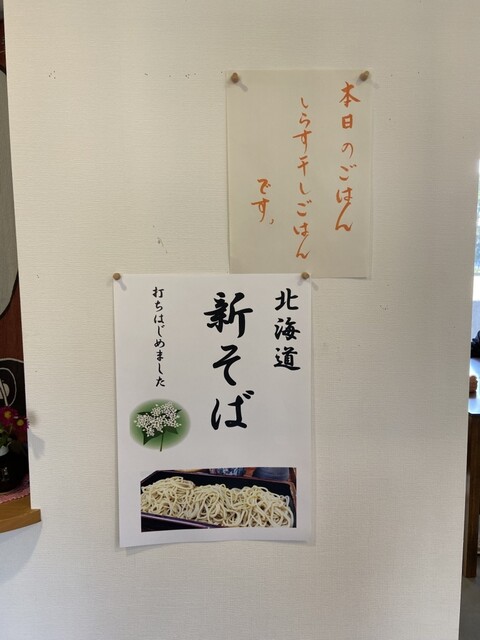 本日のごはん
しらす干しごはん
です。
北海道
新そば
打ちはじめました